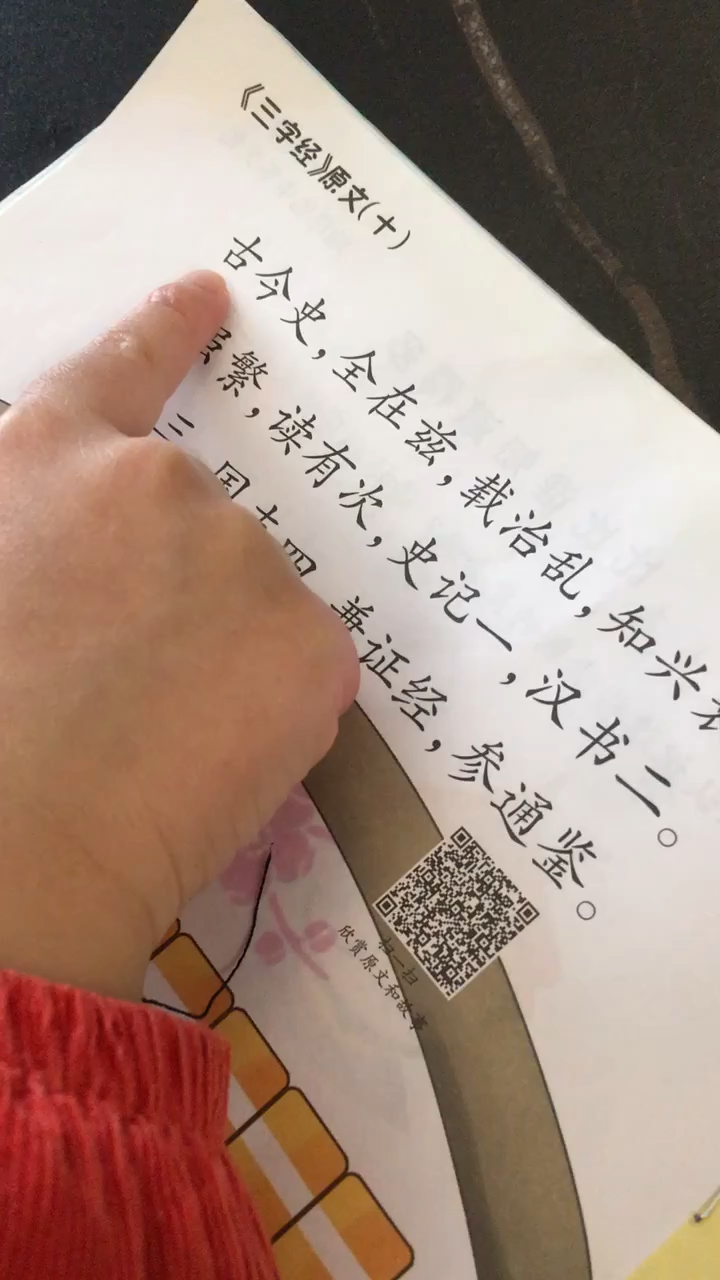 《三字经》原文(十)
古今史，全在兹，载治乱，知兴衰
繁，读有次，史记一，汉书二。
三国 四 兼证经，参通鉴。
扫一扫
欣赏原文和故事